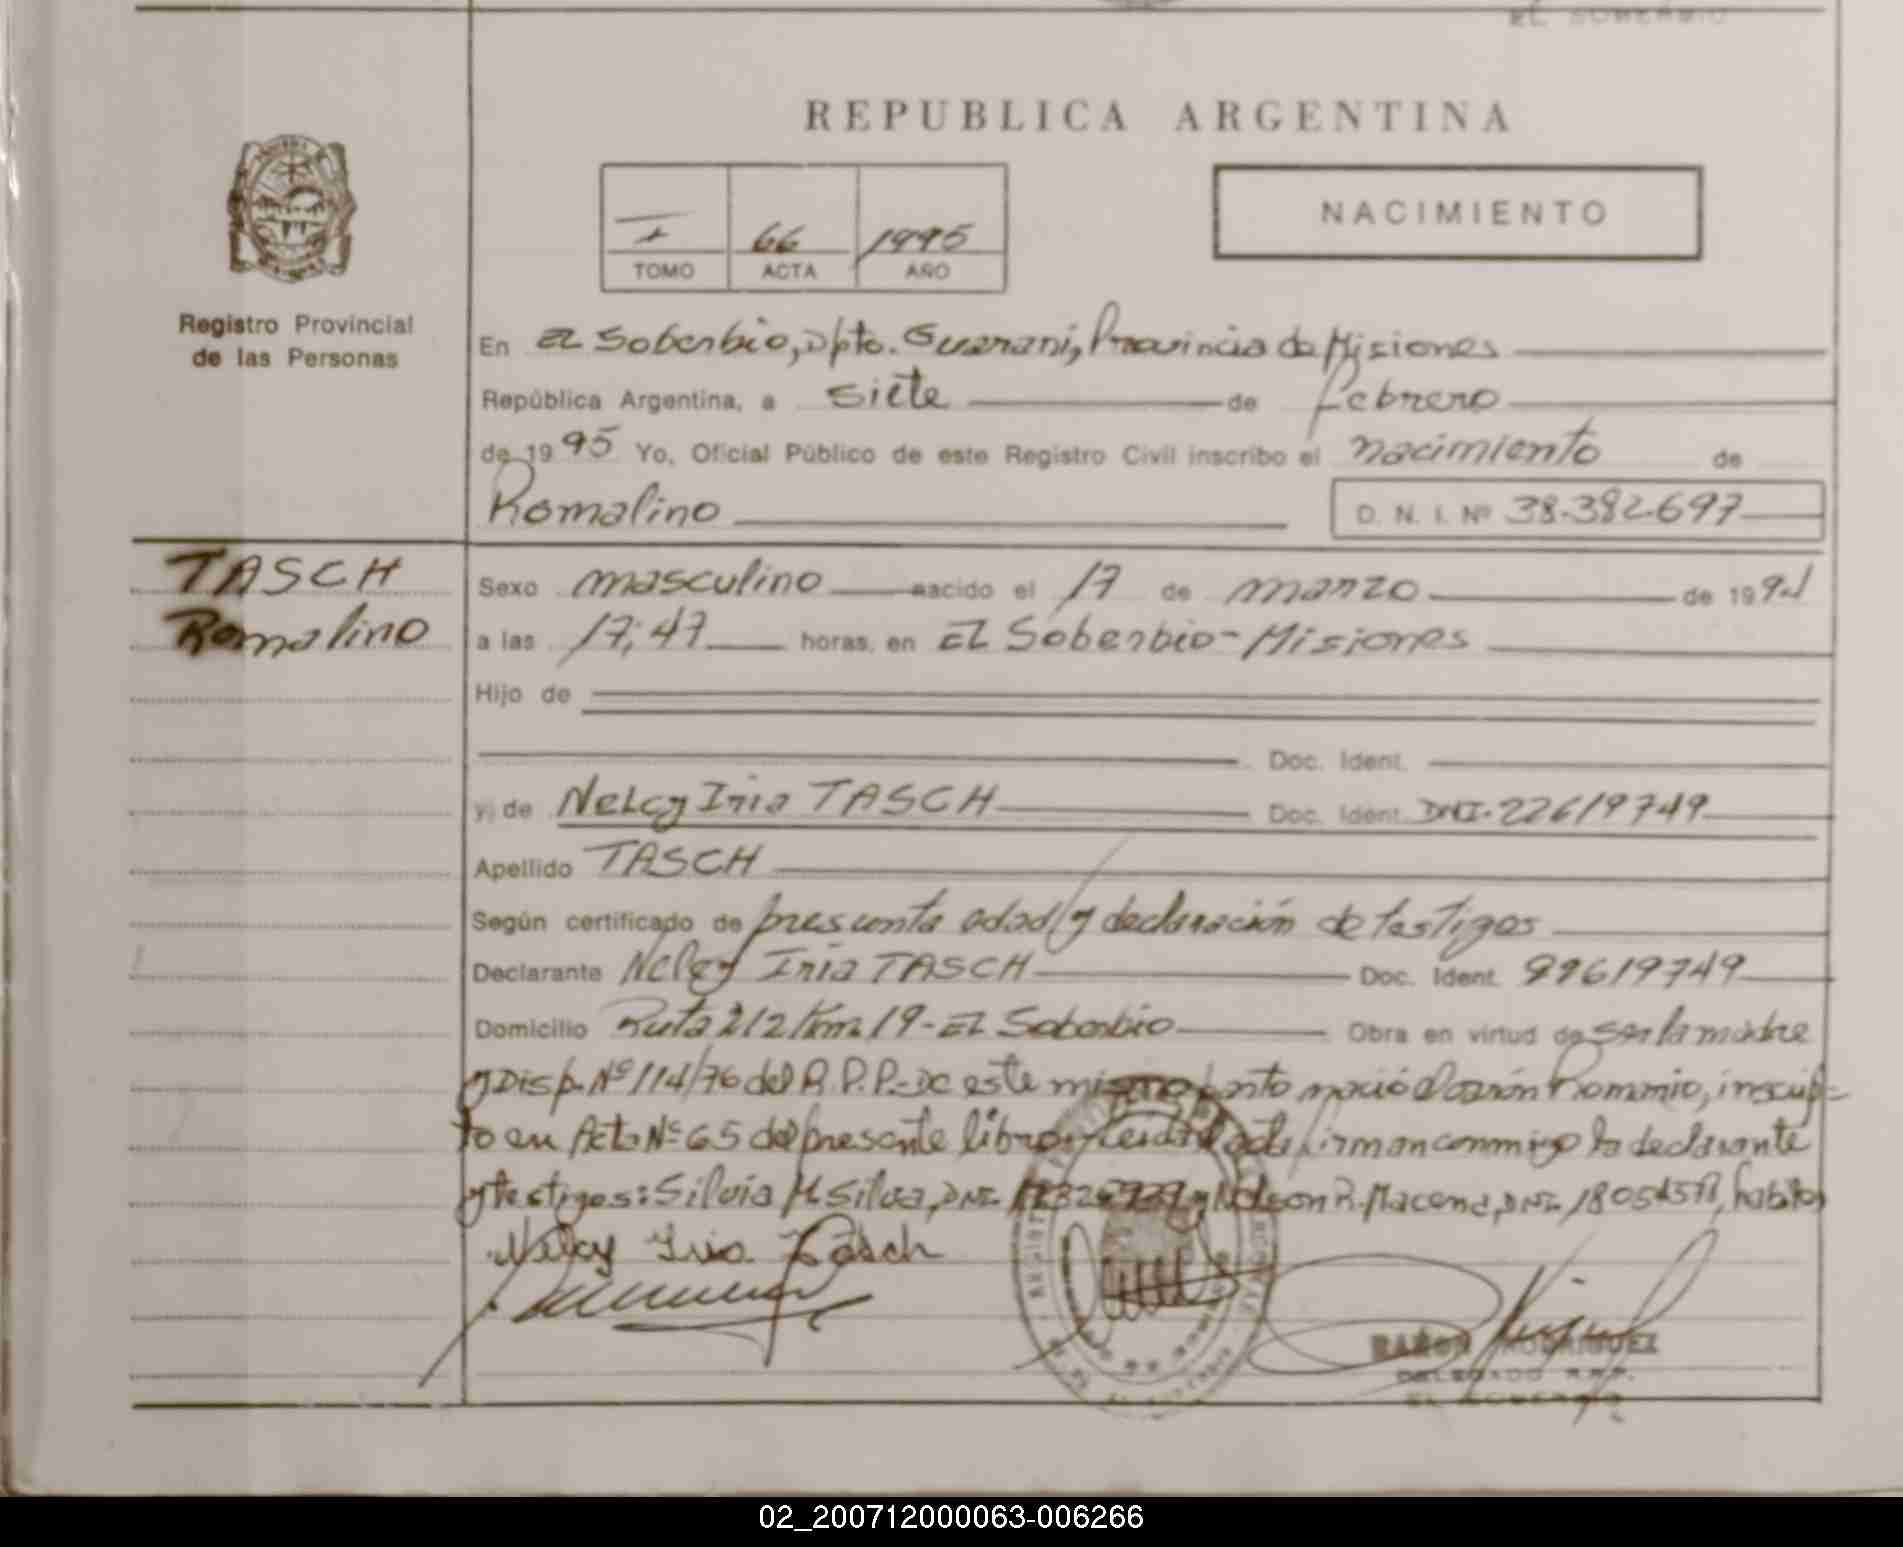 EL SOBERBIO
REPUBLICA ARGENTINA
NACIMIENTO
I 66 1995
TOMO ACTA AÑO
Registro Provincial
de las Personas
En El Soberbio, Dpto. Guaraní, Provincia de Misiones
República Argentina, a siete de febrero
de 1995 Yo, Oficial Público de este Registro Civil inscribo el nacimiento de
Romalino D. N. I. Nº 38.382.697
TASCH
Romalino
Sexo masculino nacido el 17 de marzo de 1994
a las 17;47 horas, en El Soberbio-Misiones
Hijo de
Doc. Ident.
y de Nelcy Iria TASCH Doc. Ident. DNI.22619749
Apellido TASCH
Según certificado de presunta edad y declaración de testigos
Declarante Nelcy Iria TASCH Doc. Ident. 22619749
Domicilio Ruta 212 Km 19-El Soberbio Obra en virtud de ser la madre
y Disp. Nº 114/76 del R.P.P.-De este mismo parto nació el varón Romanio, inscrip-
to en Acta Nº 65 del presente libro. Leída el acta firman conmigo la declarante
y testigos: Silvia M Silva, DNI y Nelson R. Macena, DNI
Nelcy Iria Tasch
RAMON RODRIGUEZ
DELEGADO R.P.P.
EL SOBERBIO
02_200712000063-006266